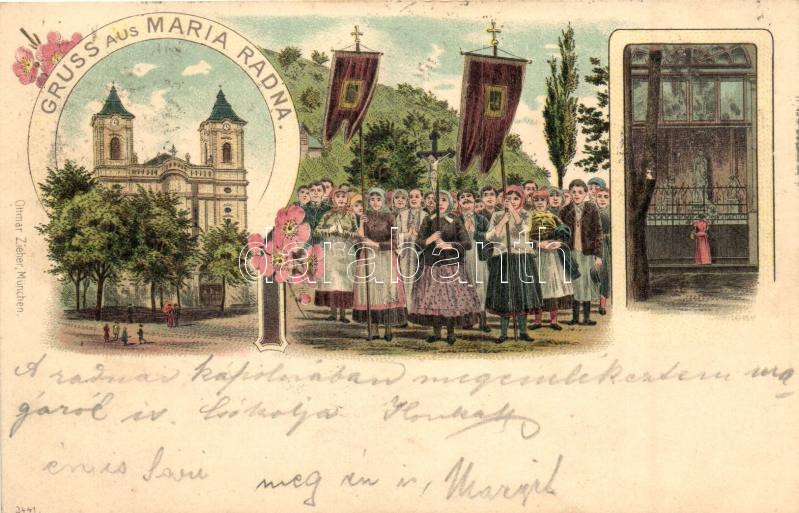 GRUSS AUS MARIA RADNA.
Ottmar Zieher, München.
darabanth
A radnai kápolnában megemlékeztem ma-
gáról is. Csókolja
én is Sári
meg én is, Margit
3441